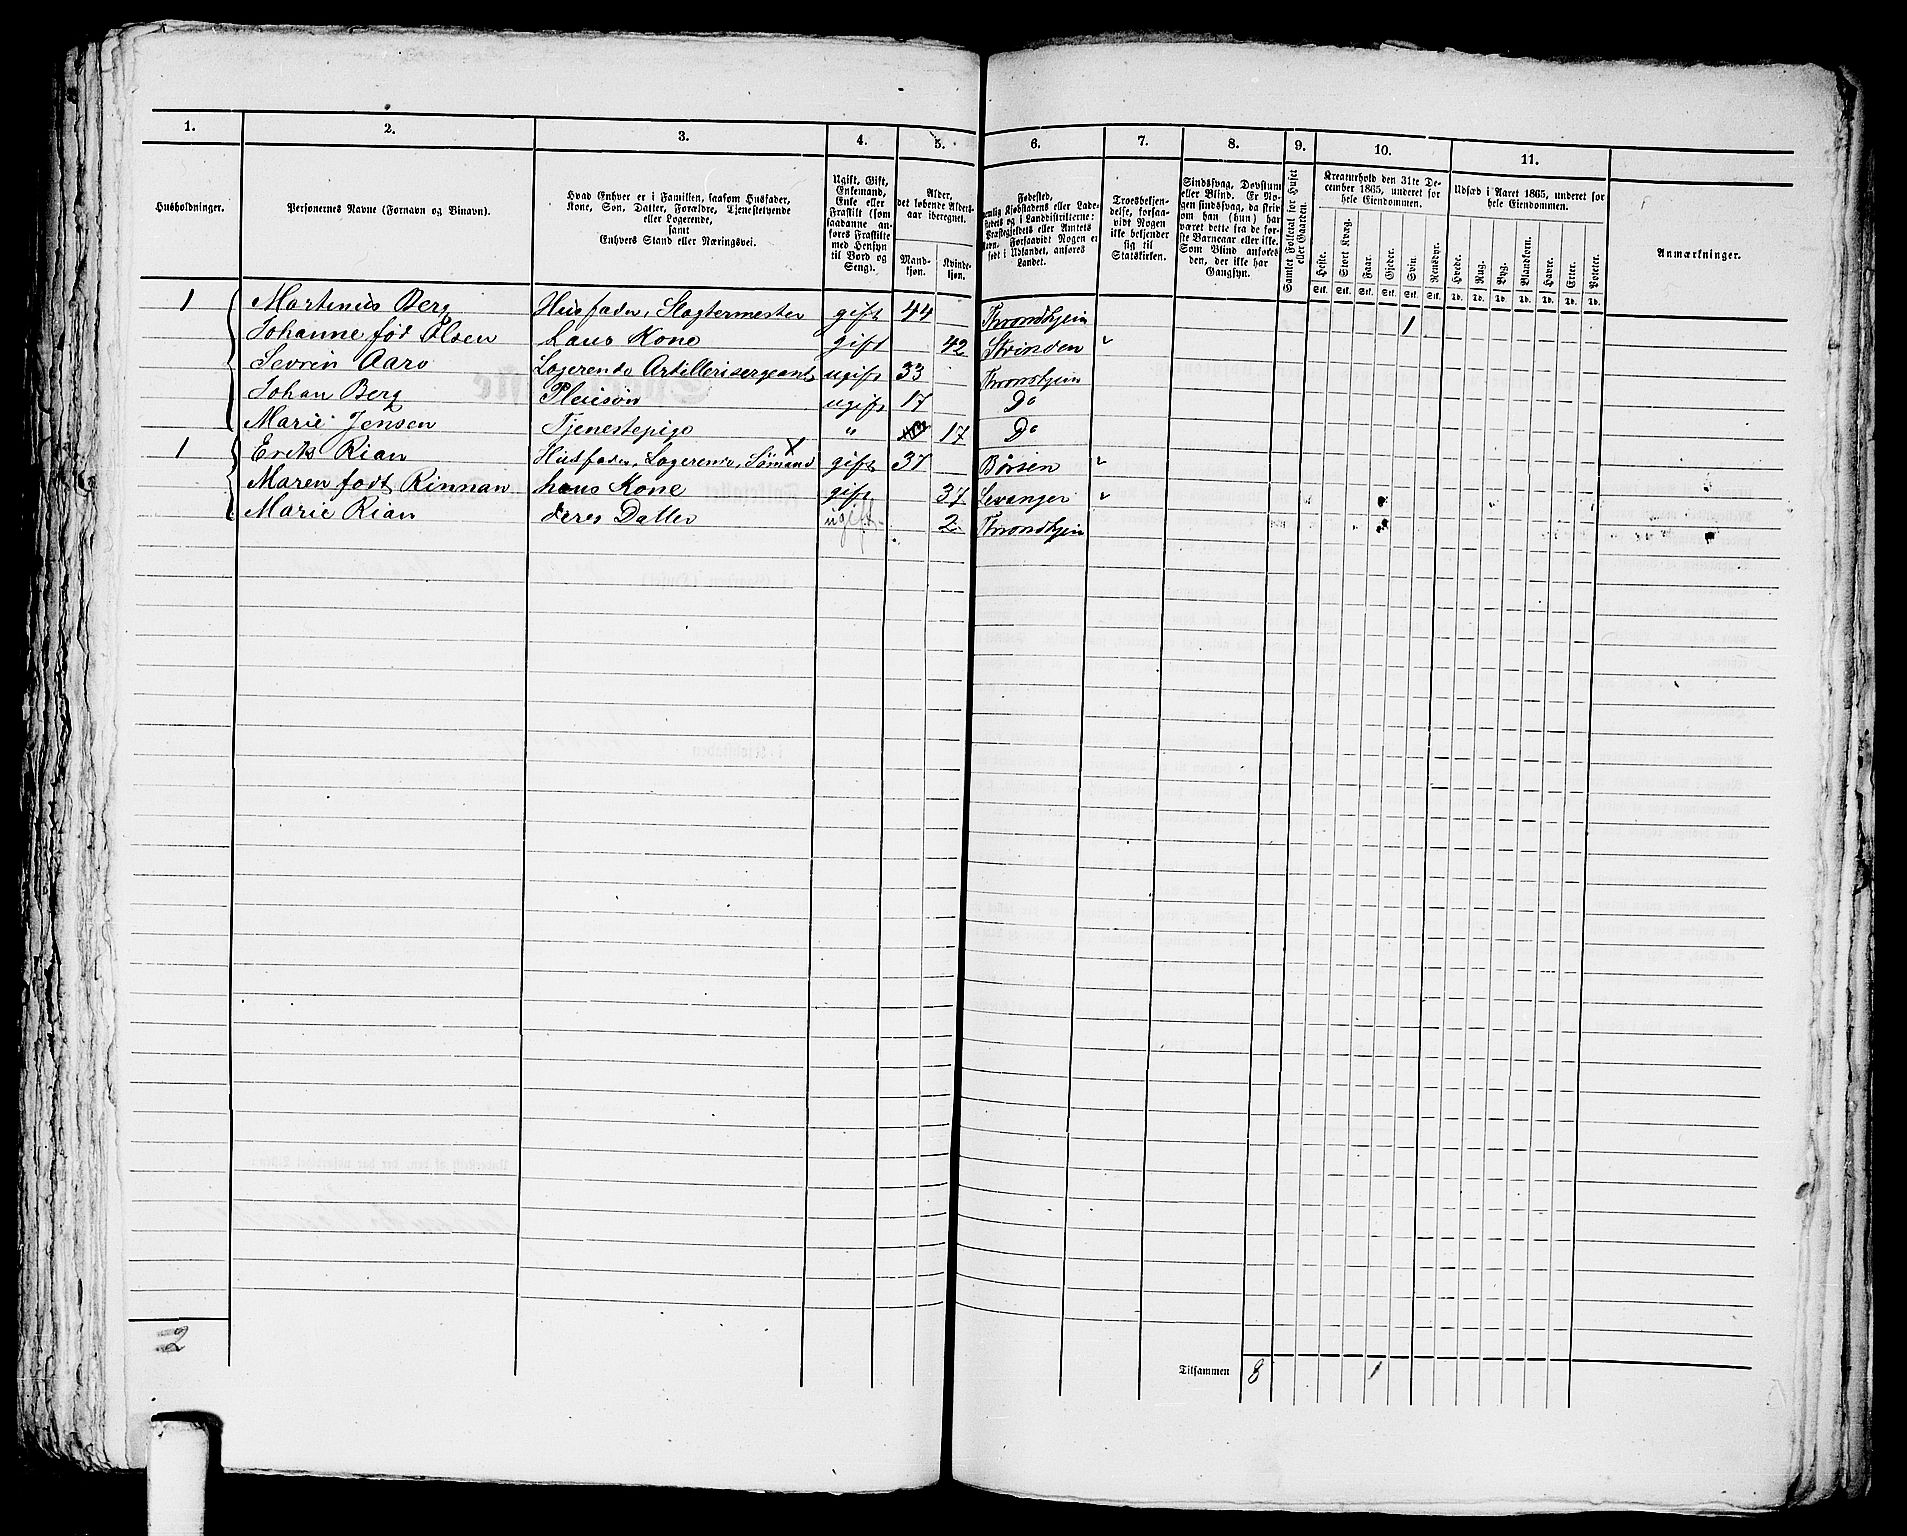 1. 2. 3. 4. 5. 6. 7. 8. 9. 10. 11.
Husholdninger.
Personernes Navne (Fornavn og Vinavn).
Hvad Enhver er i Familien, saasom Husfader,
Kone, Søn, Datter, Forældre, Tjenestetyende
eller Logerende,
samt
Enhvers Stand eller Næringsvei.
Ugift, Gift,
Enkemand,
Enke eller
Fraskilt (som
saadanne an-
føres Fraskilte
med Hensyn
til Bord og
Seng).
Alder,
det løbende Alders-
aar iberegnet.
Mand-
kjøn.
Kvinde-
kjøn.
Fødested,
nemlig Kjøbstadens eller Lade-
stedets og i Landdistrikterne:
Præstegjeldets eller Amtets
Navn. Forsaavidt Nogen er
født i Udlandet, anføres
Landet.
Troesbekjen-
delse, forsaa-
vidt Nogen
ikke bekjender
sig til
Statskirken.
Sindssvag, Døvstum
eller Blind. Er No-
gen sindssvag, da skriv
om han (hun) har
været dette fra de før-
ste Barneaar eller ikke.
Som Blind anføres
den, der ikke har
Gangsyn.
Samlet Folketal for Huset
eller Gaarden.
Kreaturhold den 31te De-
cember 1865, underet for
hele Eiendommen.
Heste. Stort Kvæg. Faar. Gjeder. Svin. Rensdyr.
Stk. Stk. Stk. Stk. Stk. Stk.
Udsæd i Aaret 1865, underet for
hele Eiendommen.
Hvede. Rug. Byg. Blandkorn. Havre. Erter. Poteter.
Td. Td. Td. Td. Td. Td. Td.
Anmærkninger.
1 Martinus Berg Husfader, Slagtermester gift 44 Throndhjem 1
Johanne fød Olsen hans Kone gift 42 Strinden "
Sevrin Aaro Logerende Artellerisergeant ugift 33 Throndhjem
Johan Berg Pleiesøn ugift 17 Do
Marie Jensen Tjenestepige " 17 Do
1 Erik Rian Husfader, Logerende, Sømand gift 37 Børsen "
Maren født Rinnan hans Kone gift 37 Levanger "
Marie Rian deres Datter ugift 2 Throndhjem
2
Tilsammen 8 1